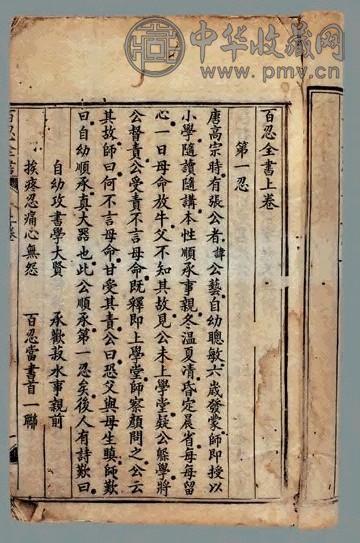 中华收藏网
www.pmv.cn
百忍全書上卷
第一忍
唐高宗時有張公者諱公藝自幼聰敏六歲發蒙師即授以
小學隨讀隨講本性順承事親冬温夏凊昏定晨省每每留
心一日母命放牛父不知其故見公未上學堂疑公躲學將
公督責公受責不言母命既釋即上學堂師察顏問之公云
其故師曰何不言母命甘受其責公曰恐父與母生瞋師歎
曰自幼順承真大器也此公順承第一忍矣後人有詩歎曰
自幼攻書學大賢 承歡菽水事親前
挨疼忍痛心無怨 百忍當書首一聯
百忍全書
上卷